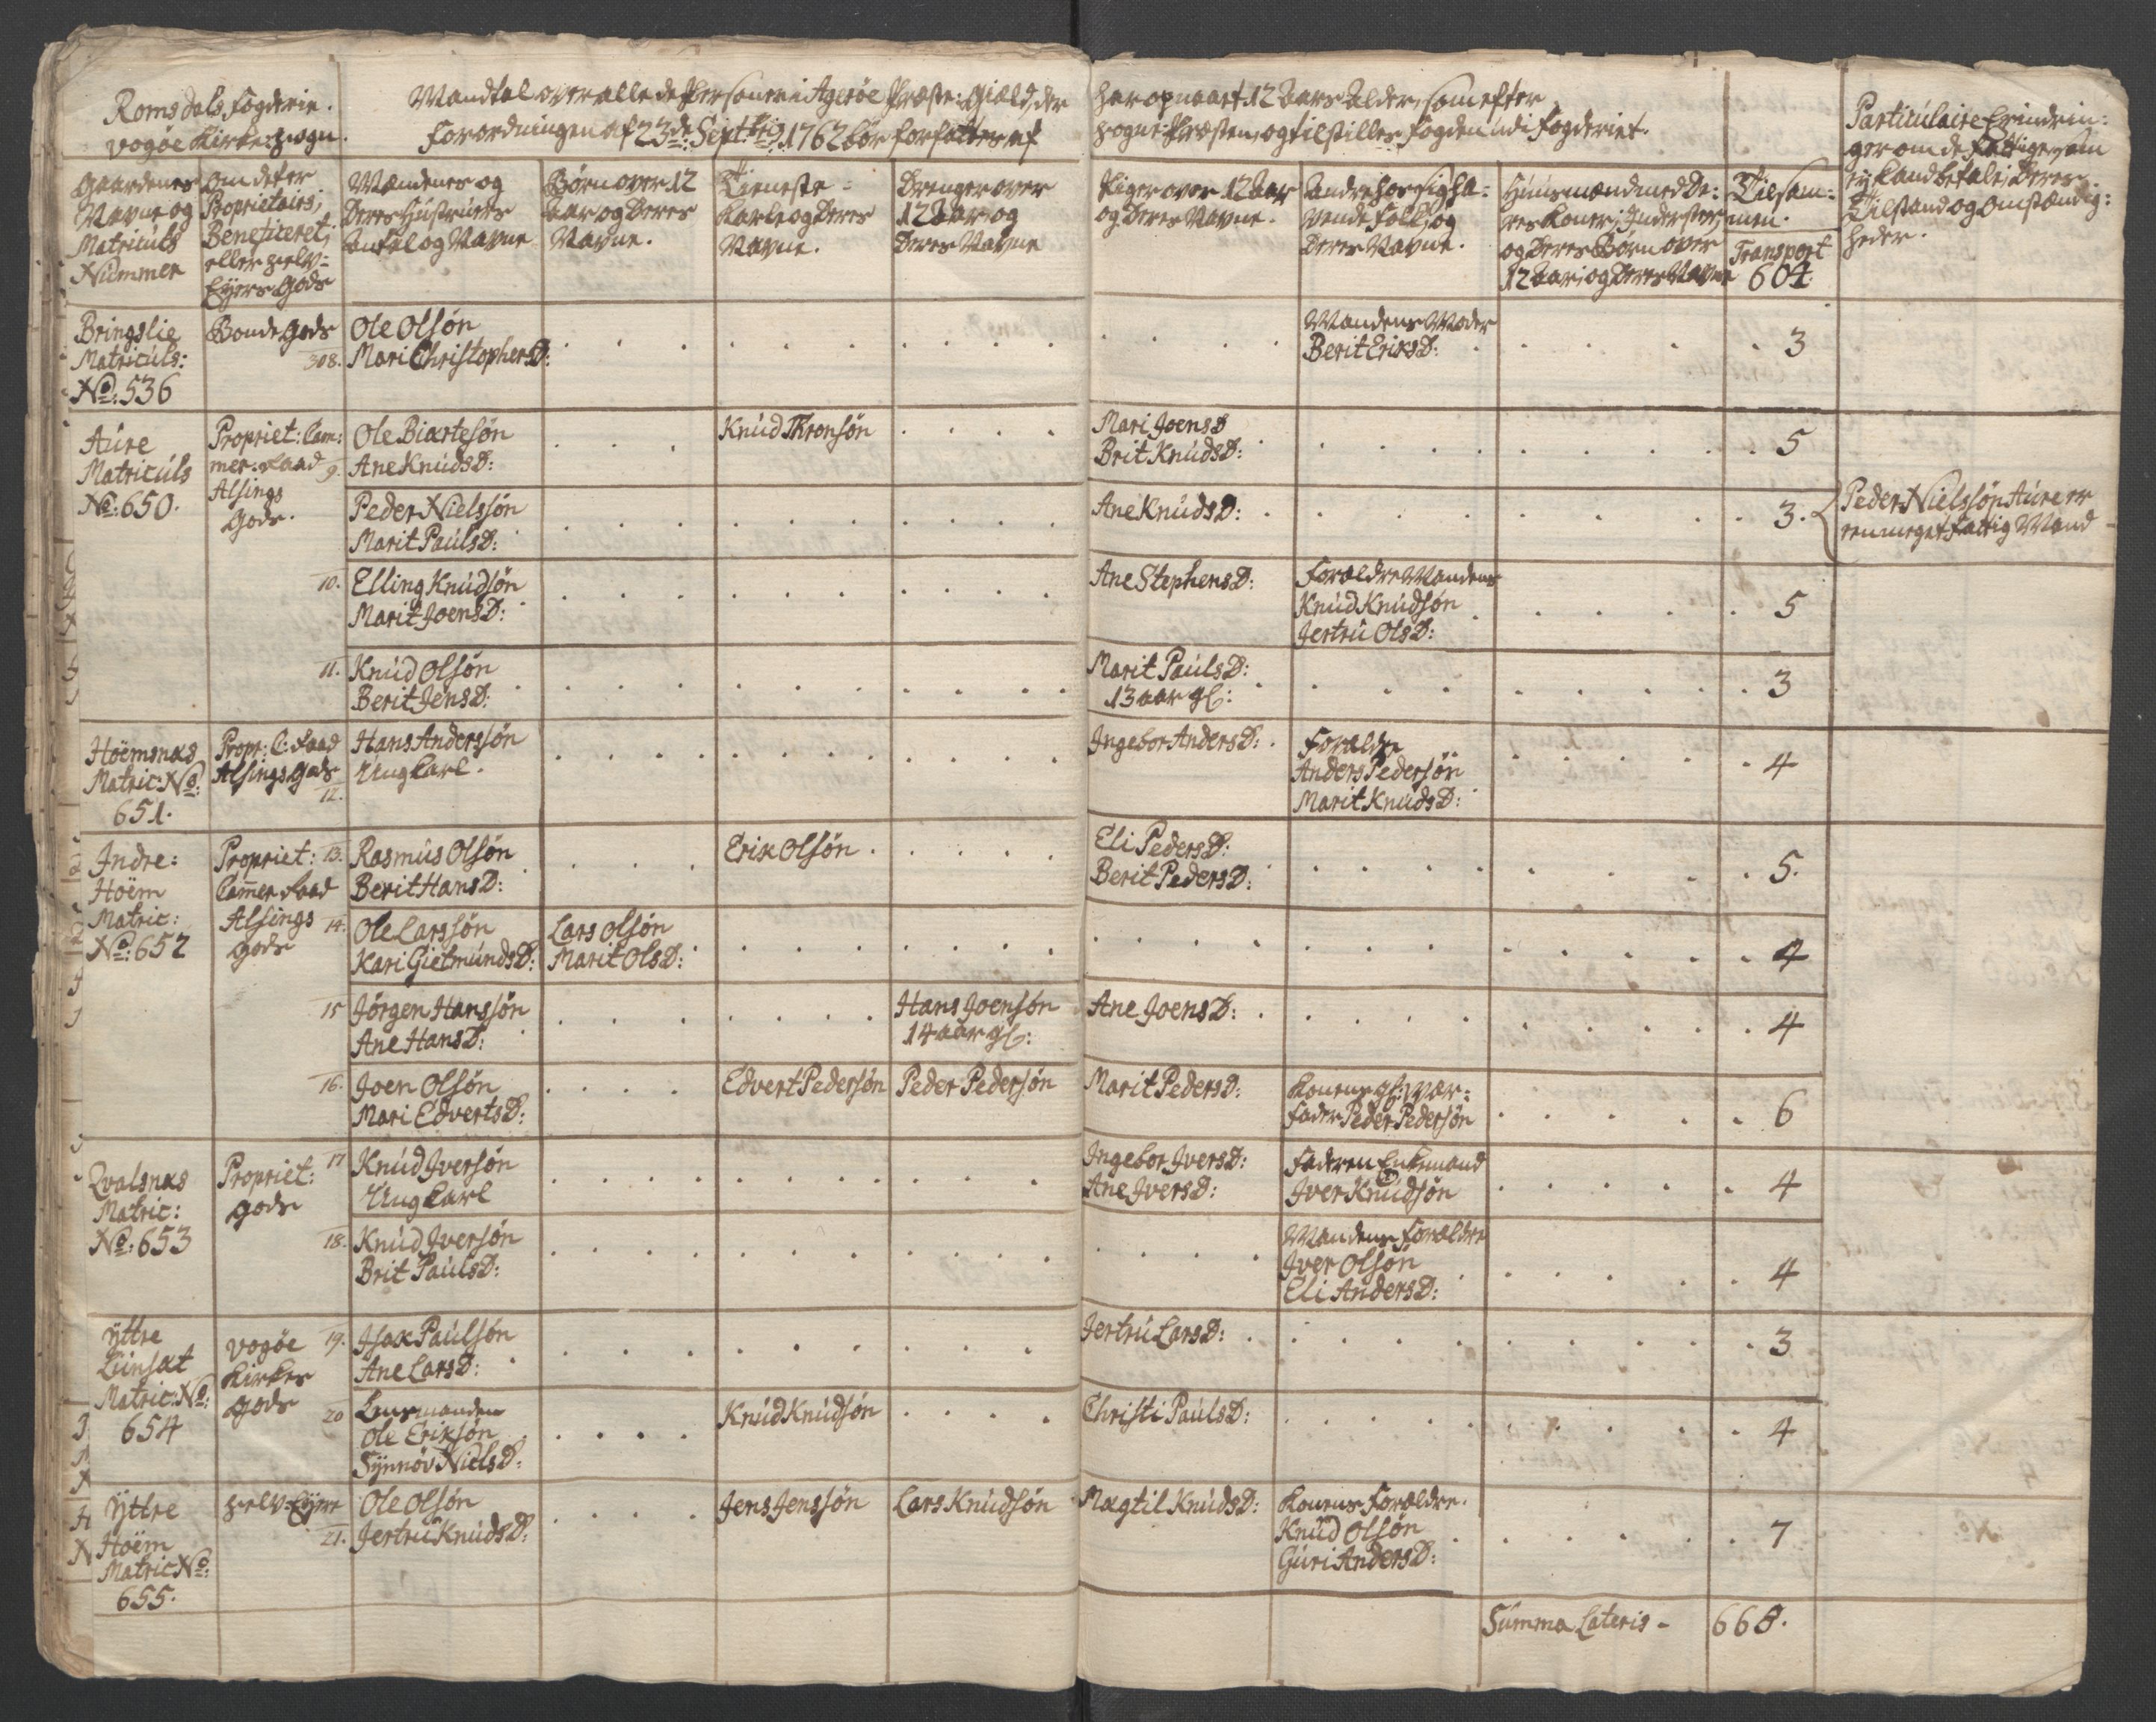 Romsdals Fogderie.
Vogøe Kirke-Sogn.
Mandtal over alle de Persohner i Agerøe Præste-Giæld, der
Forordningen af 23de Septbris 1762 bør forfattes af
har opnaaet 12 Aars Alder, som efter
Sogne-Præsten, og tilstilles Fogden udi Fogderiet.
Gaardenes
Navne og
Matriculs
Nummer
Om det er
Proprietairs,
Beneficeret,
eller Selv-
Eyers Gods
Mændenes og
Deres Hustruers
Antal og Navne
Børn over 12
Aar og Deres
Navne.
Tieneste-
Karle og Deres
Navne.
Drenger over
12 Aar og
Deres Navne
Piger over 12 Aar
og Deres Navne.
Andre hos sig ha-
vende Folk, og
Deres Navne.
Huusmænd med De-
res Koner, Inderster,
og Deres Børn over
12 Aar, og Deres Navne
Tilsam-
men.
Transport
604.
Particulaire Erindrin-
ger om de Fattige, som
ej kand betale, Deres
Tilstand og Omstændig-
heder.
Bringslie
Matriculs:
No: 536
Bonde Gods
308.
Ole Olsøn
Mari ChristophersD:
Mandens Moder
Berit EriksD:
3
Aure
Matriculs
No: 650.
Propriet: Cam-
mer-Raad
Alsings
Gods.
9.
Ole Biærtesøn
Ane KnudsD:
Knud Thronsøn
Mari JoensD
Brit KnudsD:
5
Peder Nielssøn
Marit PaulsD:
Ane KnudsD:
3.
Peder Nielssøn Aure er
en meget Fattig Mand
10.
Elling Knudsøn
Marit JoensD:
Ane StephensD:
Forældre Mandens
Knud Knudsøn
Jertru OlsD:
5
11.
Knud Olsøn
Berit JensD:
Marit PaulsD:
13 aar gl:
3
Höemsnæs
Matric: No:
651.
Propr: C: Raad
Alsings Gods
12.
Hans Anderssøn
Ung Carl.
Ingebor AndersD:
Forældre
Anders Pedersøn
Marit KnudsD:
4
Indre:
Höem
Matric:
No: 652
Propriet:
Cammer Raad
Alsings
Gods
13.
Rasmus Olsøn
Berit HansD:
Erik Olsøn
Eli PedersD:
Berit PedersD:
5.
14.
Ole Larssøn
Kari GietmundsD:
Lars Olsøn
Marit OlsD:
4
15
Jörgen Hanssøn
Ane HansD:
Hans Joensøn
14 aar gl:
Ane JoensD:
4
16.
Joen Olsøn
Mari EdvertsD:
Edvert Pedersøn
Peder Pedersøn
Marit PedersD:
Konens gl: Vær-
Fader Peder Pedersøn
6
Qvalsnæs
Matric:
No: 653
Propriet:
Gods
17
Knud Iversøn
Ung Carl
Ingebor IversD:
Ane IversD:
Faderen Enkemand
Iver Knudsøn
4
18.
Knud Iversøn
Brit PaulsD:
Mandens Forældre
Iver Olsøn
Eli AndersD:
4
Yttre
Lunsæt
Matric: No:
654
Vogøe
Kirkes
Gods
19.
Isak Paulsøn
Ane LarsD:
Jertru LarsD:
3
20
Lensmanden
Ole Eriksøn
Synnöv NielsD:
Knud Knudsøn
Christi PaulsD:
4
Yttre
Höem
Matric No:
655.
Selv-Eyere
21.
Ole Olsøn
Jertru KnudsD:
Jens Jenssøn
Lars Knudsøn
Magtil KnudsD:
Konens Forældre.
Knud Olsøn
Guri AndersD:
7
Summa Lateris -
668.